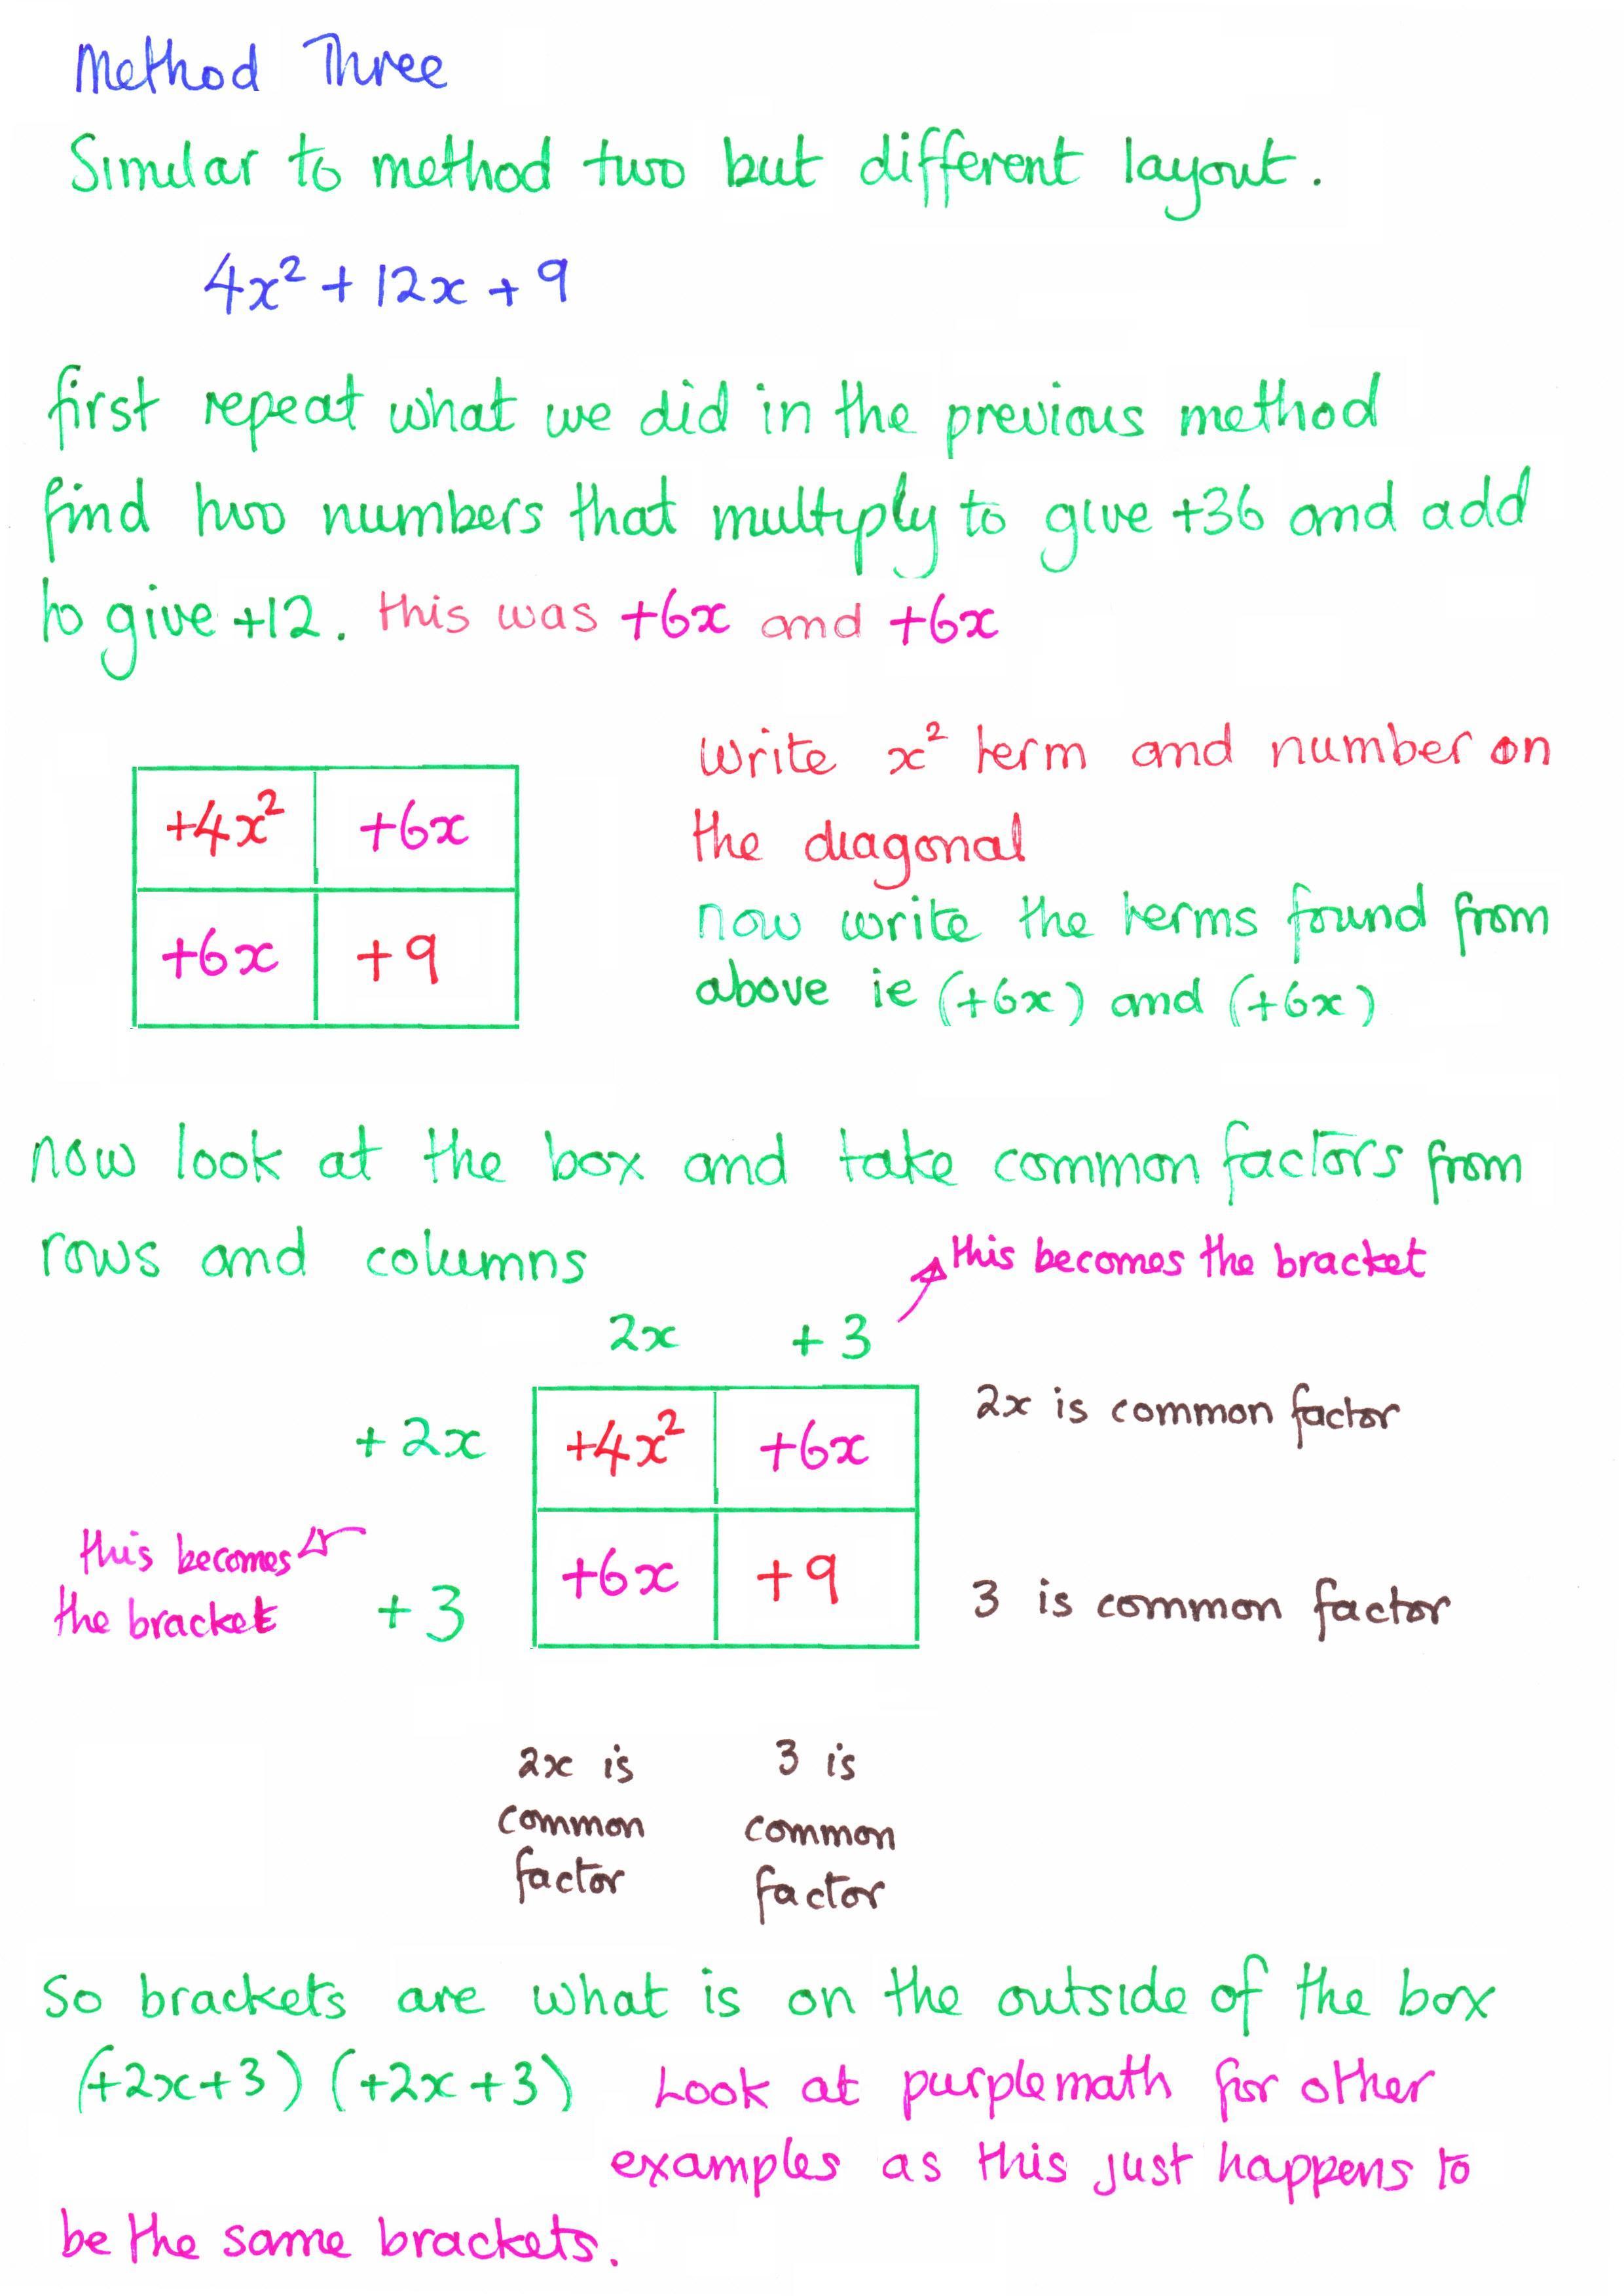 Method Three
Similar to method two but different layout.
4x² + 12x + 9
first repeat what we did in the previous method
find two numbers that multiply to give +36 and add
to give +12. this was +6x and +6x
write x² term and number on
the diagonal
+4x² +6x
now write the terms found from
above ie (+6x) and (+6x)
+6x +9
now look at the box and take common factors from
rows and columns
this becomes the bracket
2x + 3
+ 2x +4x² +6x 2x is common factor
this becomes
the bracket
+ 3 +6x +9 3 is common factor
2x is
common
factor
3 is
common
factor
So brackets are what is on the outside of the box
(+2x+3) (+2x+3) Look at purplemath for other
examples as this just happens to
be the same brackets.